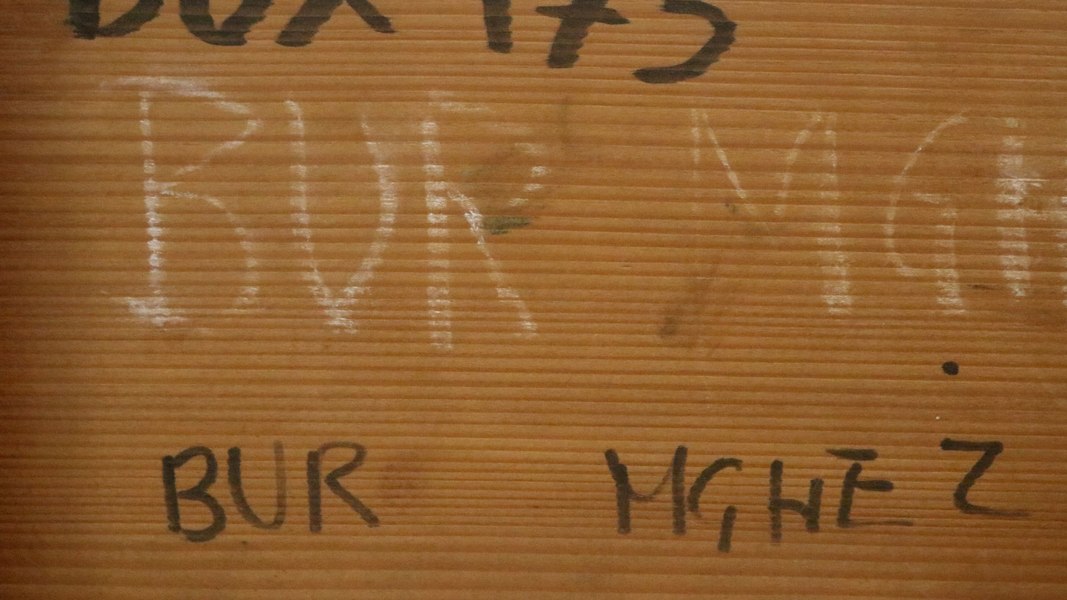 BOX 175
BUR MGH
BUR MGHEŻ